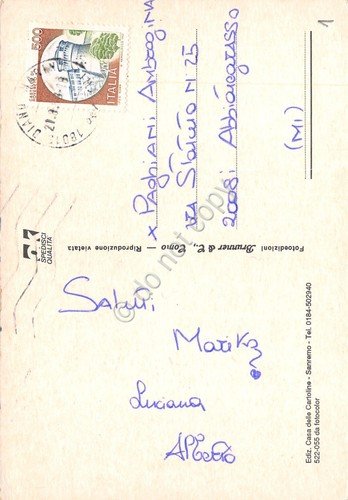 500
ITALIA
1
x PAGHIANI AMBROGINA
VIA Statuto N 25
20081 Abbiategrasso
(MI)
74
SPEDISCI
QUALITÀ
Fotoedizioni Brunner & C., Como — Riproduzione vietata
do not copy
Saluti
Marika
Luciana
Alberto
Ediz. Casa delle Cartoline - Sanremo - Tel. 0184-502940
522-055 da fotocolor